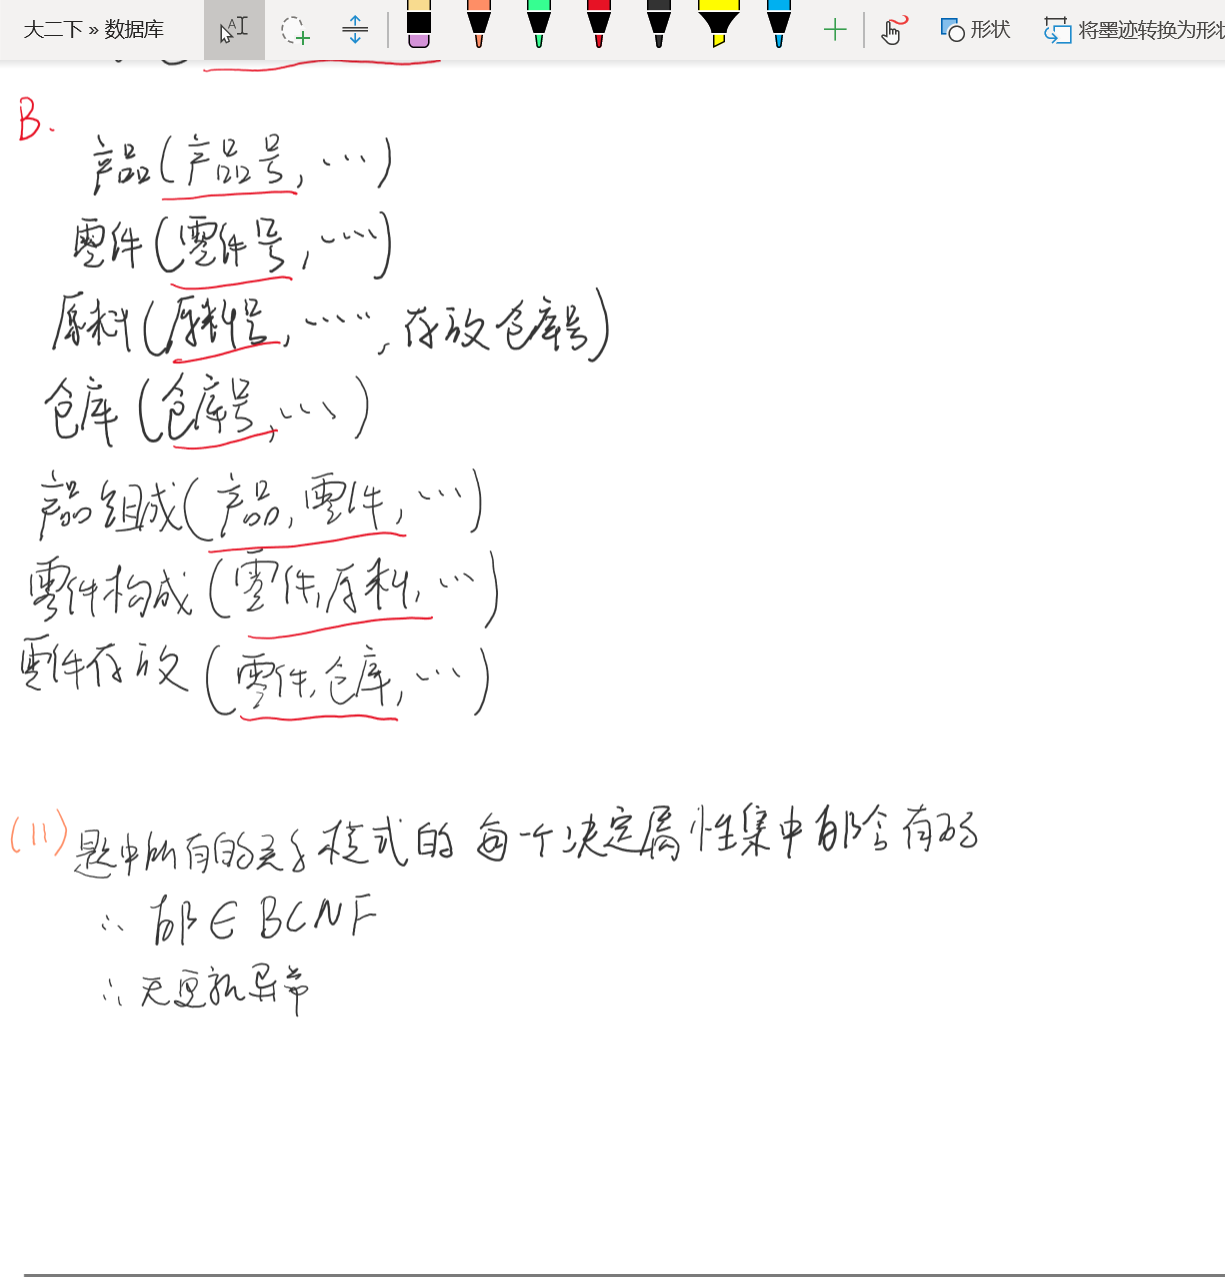 大二下 » 数据库
形状
将墨迹转换为形状
B.
产品(产品号, ···)
零件(零件号, ····)
原料(原料号, ·····, 存放仓库号)
仓库(仓库号, ···)
产品组成(产品, 零件, ···)
零件构成(零件, 原料, ···)
零件存放(零件, 仓库, ···)
(11) 题中所有的关系模式的每一个决定属性集中都含有码
∴ 都∈BCNF
∴ 无更新异常